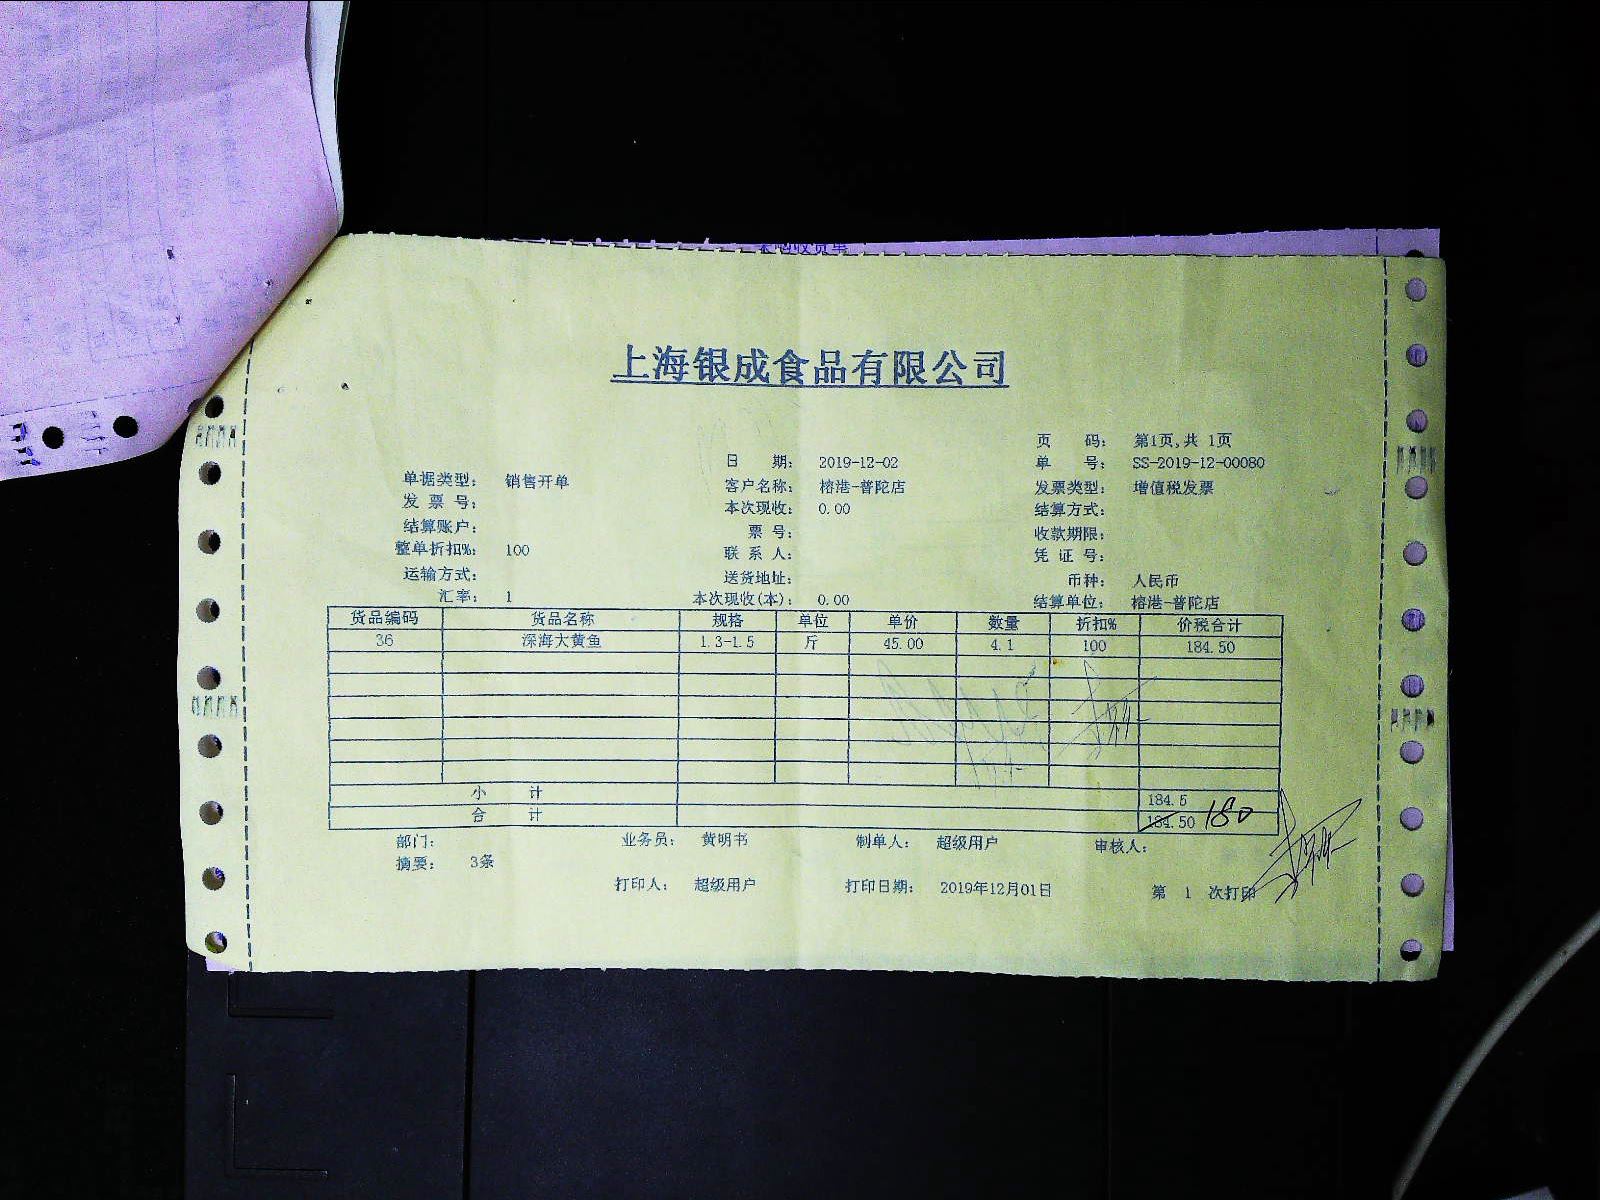 上海银成食品有限公司
页 码： 第1页,共 1页
日 期： 2019-12-02 单 号： SS-2019-12-00080
单据类型： 销售开单 客户名称： 榕港-普陀店 发票类型： 增值税发票
发 票 号： 本次现收： 0.00 结算方式：
结算账户： 票 号： 收款期限：
整单折扣%： 100 联 系 人： 凭 证 号：
运输方式： 送货地址： 币种： 人民币
汇率： 1 本次现收(本)： 0.00 结算单位： 榕港-普陀店
货品编码 货品名称 规格 单位 单价 数量 折扣% 价税合计
36 深海大黄鱼 1.3-1.5 斤 45.00 4.1 100 184.50
小 计 184.5
合 计 184.50 180
部门： 业务员： 黄明书 制单人： 超级用户 审核人：
摘要： 3条
打印人： 超级用户 打印日期： 2019年12月01日 第 1 次打印